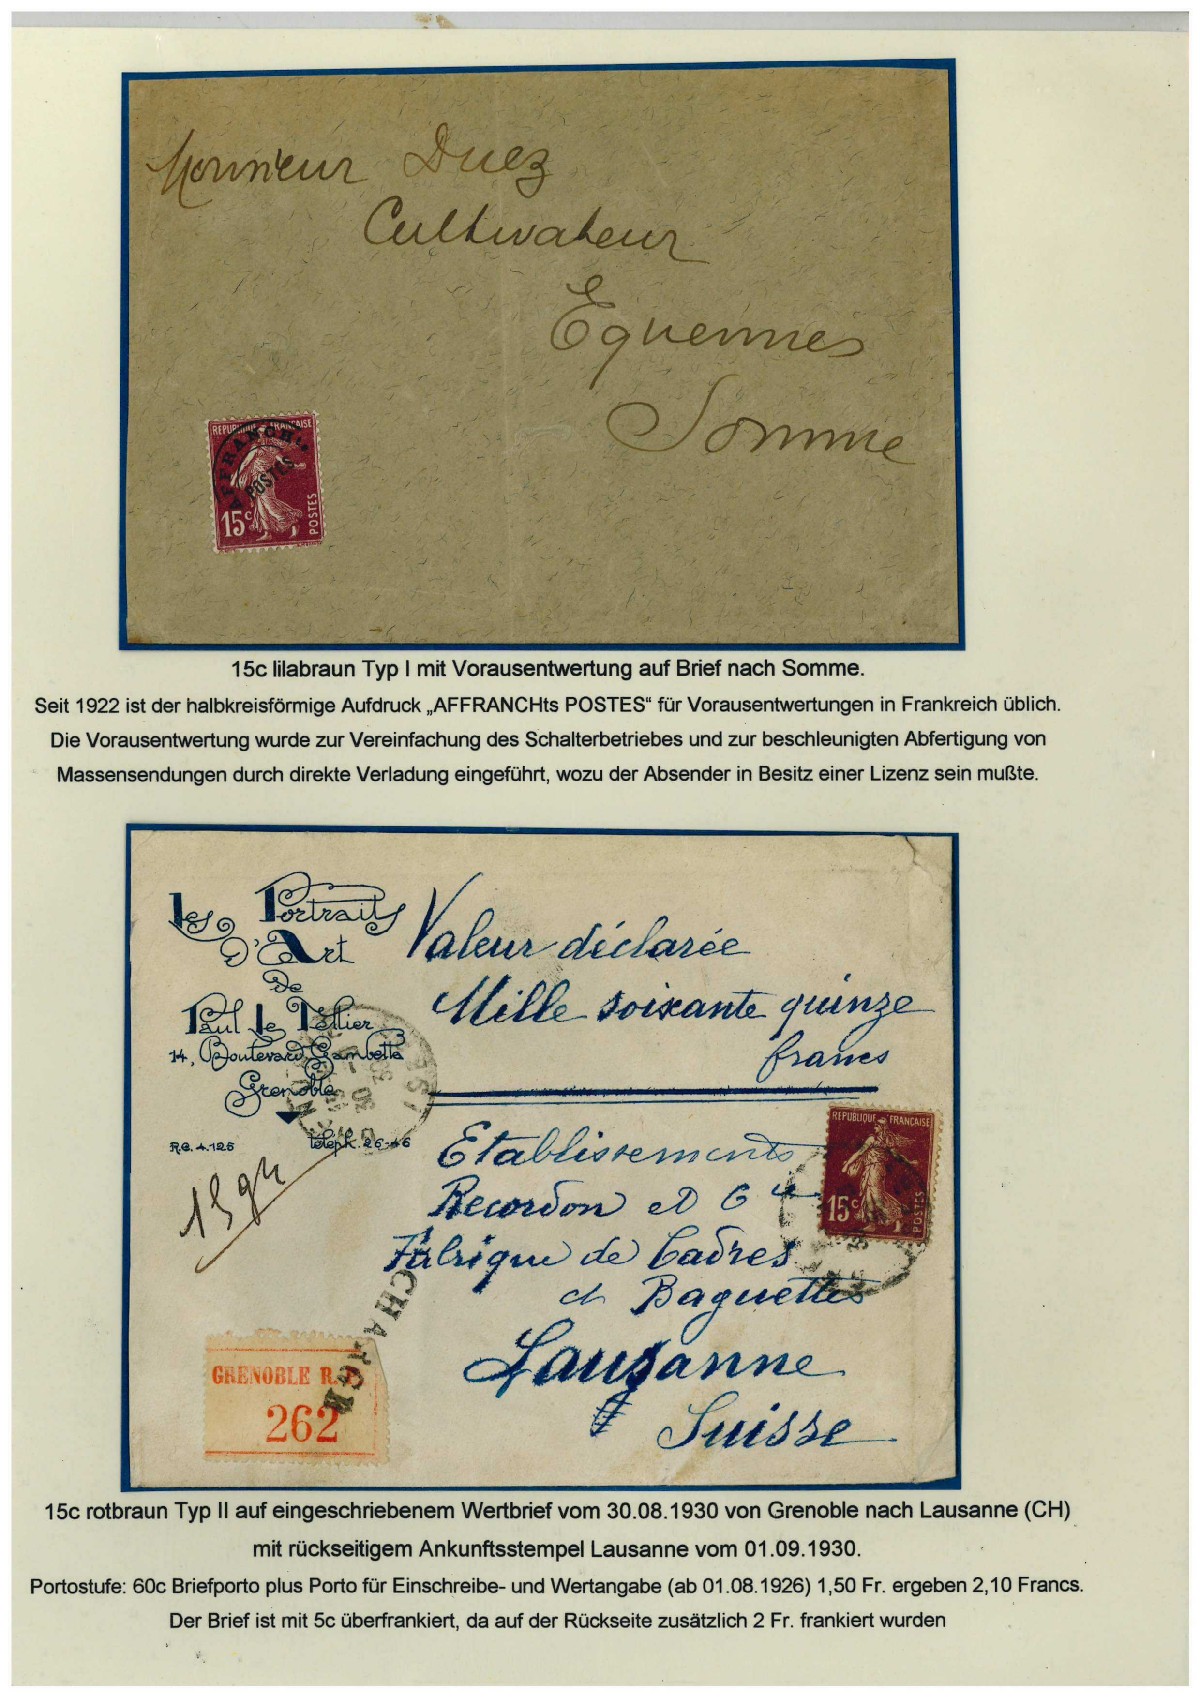 Monsieur Duez
Cultivateur
Equennes
Somme
REPUBLIQUE FRANÇAISE
AFFRANCHts
POSTES
15c
POSTES
15c lilabraun Typ I mit Vorausentwertung auf Brief nach Somme.
Seit 1922 ist der halbkreisförmige Aufdruck „AFFRANCHts POSTES“ für Vorausentwertungen in Frankreich üblich.
Die Vorausentwertung wurde zur Vereinfachung des Schalterbetriebes und zur beschleunigten Abfertigung von
Massensendungen durch direkte Verladung eingeführt, wozu der Absender in Besitz einer Lizenz sein mußte.
Les Portraits
D'Art
De
Paul Le Tellier
14, Boulevard Gambetta
Grenoble
R.C. 4.126
teleph. 26-46
Valeur déclarée
Mille soixante quinze
francs
REPUBLIQUE FRANÇAISE
15c
POSTES
Etablissements
Recordon et Cie
Fabrique de Cadres
et Baguettes
Lausanne
Suisse
15gr
ISERE
30
CHARGE
GRENOBLE R.P.
262
15c rotbraun Typ II auf eingeschriebenem Wertbrief vom 30.08.1930 von Grenoble nach Lausanne (CH)
mit rückseitigem Ankunftsstempel Lausanne vom 01.09.1930.
Portostufe: 60c Briefporto plus Porto für Einschreibe- und Wertangabe (ab 01.08.1926) 1,50 Fr. ergeben 2,10 Francs.
Der Brief ist mit 5c überfrankiert, da auf der Rückseite zusätzlich 2 Fr. frankiert wurden